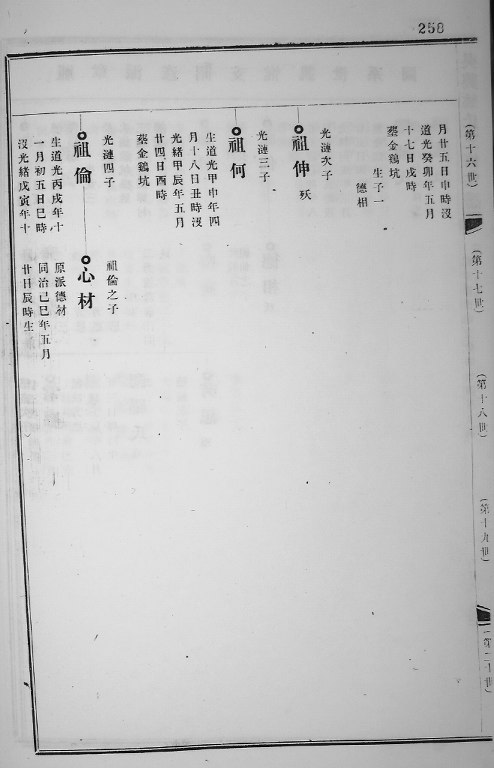 258
(第十六世)
(第十七世)
(第十八世)
(第十九世)
(第二十世)
月廿五日申時沒
道光癸卯年五月
十七日戌時
塟金鷄坑
生子一
德相
光漣次子
祖伸 殀
光漣三子
祖何
生道光甲申年四
月十八日丑時沒
光緒甲辰年五月
廿四日酉時
塟金鷄坑
光漣四子
祖倫
生道光丙戌年十
一月初五日巳時
沒光緒戊寅年十
祖倫之子
心材
原派德材
同治己巳年五月
廿日辰時生